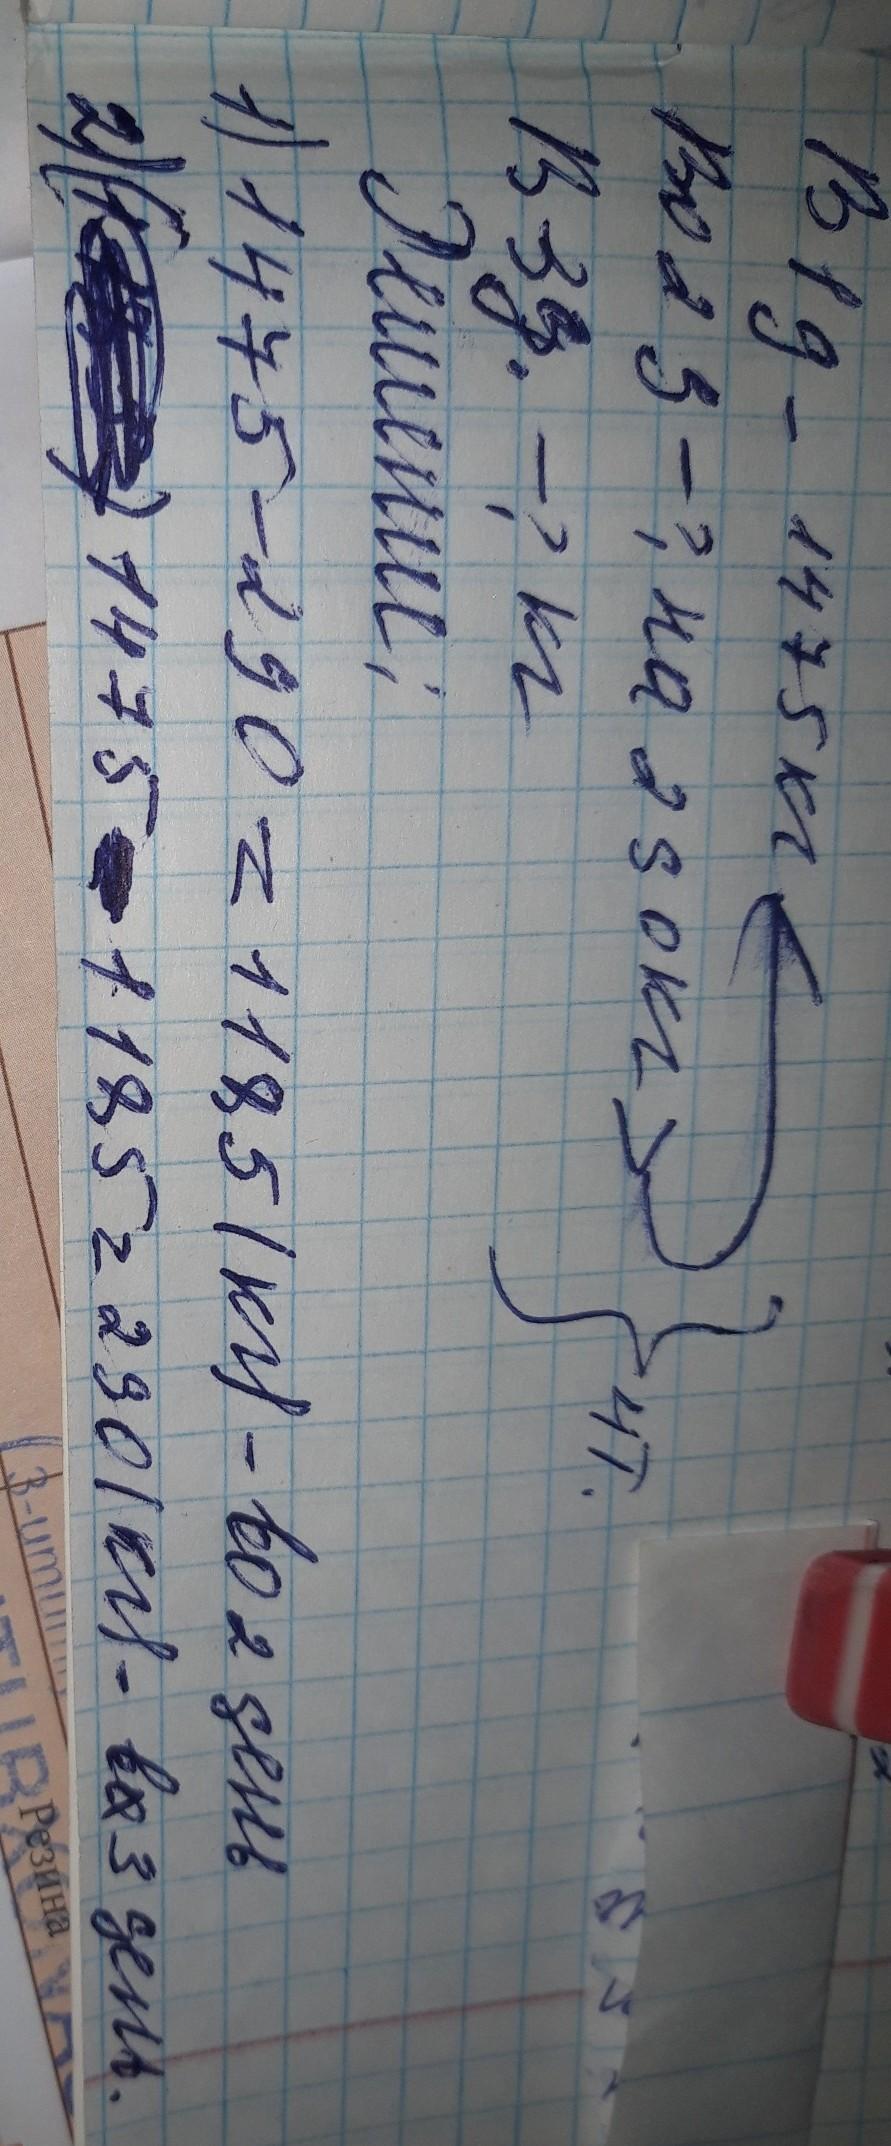 В 1 д - 1475 кг
Во 2 д - ? на 290 кг
В 3 д. - ? кг
4т.
Решение:
1) 1475 - 290 = 1185 (кг) - во 2 день
2) 1475 - 1185 = 290 (кг) - в 3 день.
(3-
Резина